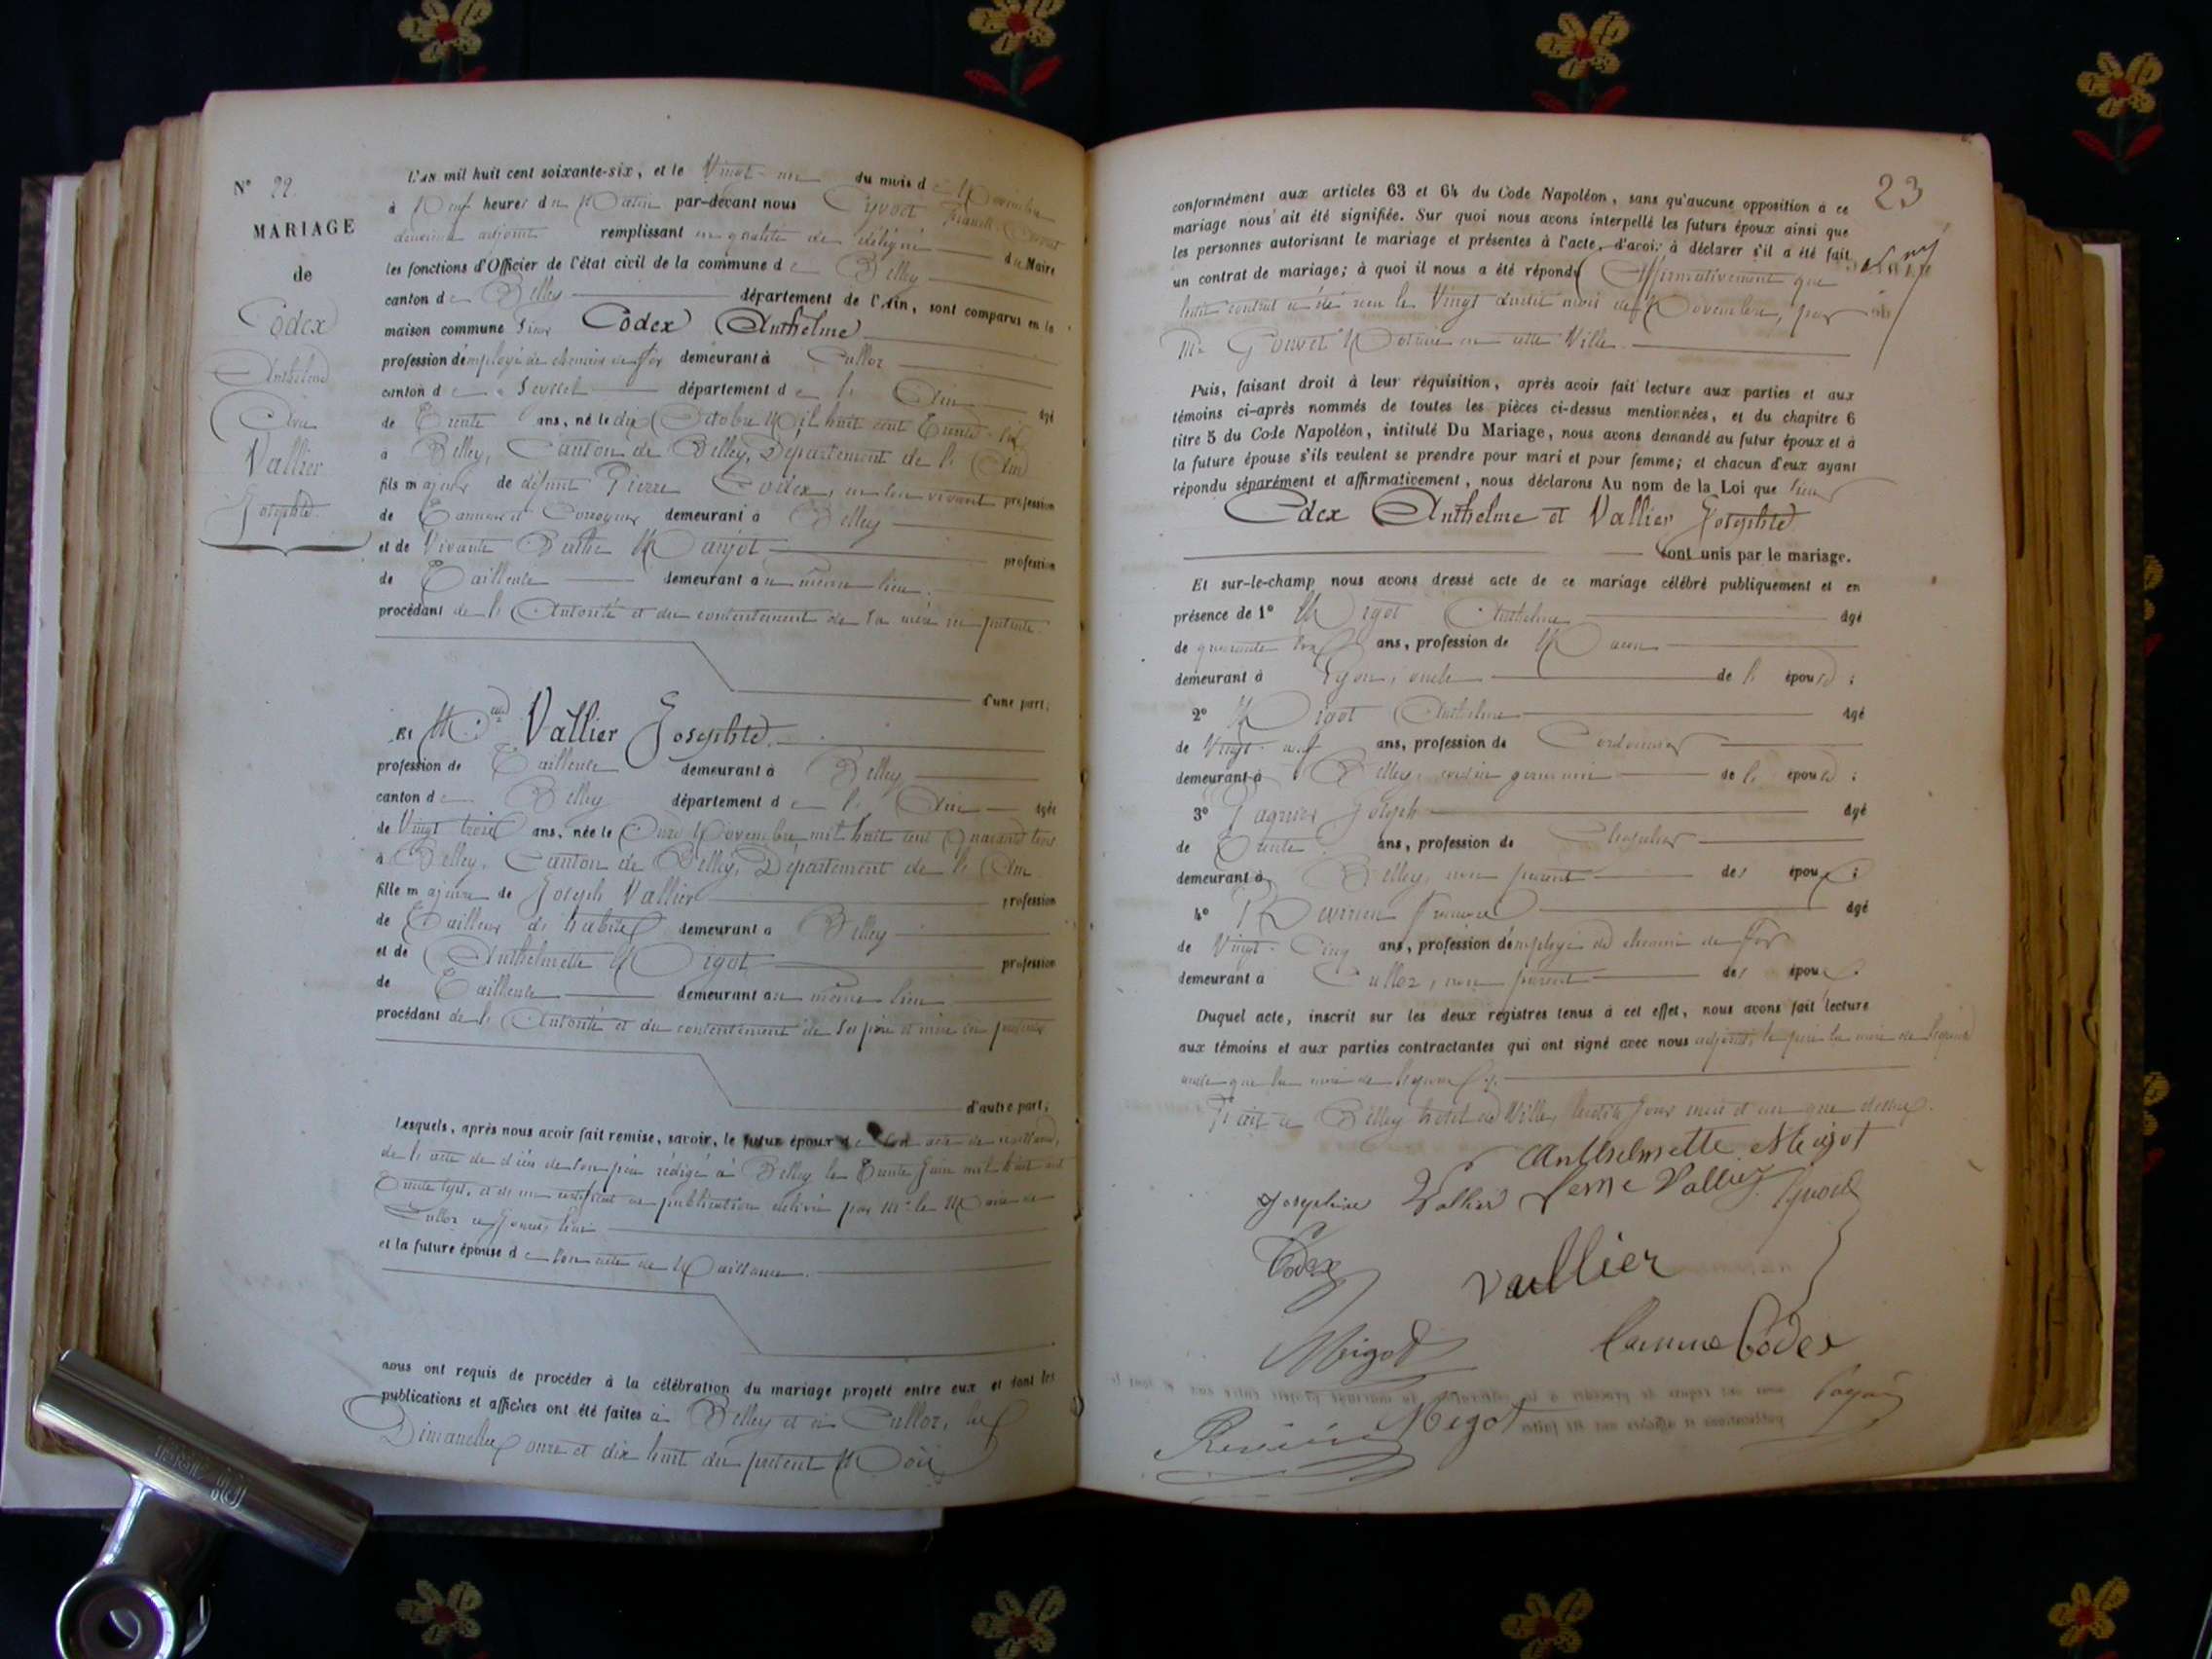 N° 22.
MARIAGE
de
Codex
Anthelme
Avec
Vallier
Josephte
L'an mil huit cent soixante-six, et le Vingt-un du mois de Novembre
à Neuf heures du Matin par-devant nous
deuxième adjoint remplissant en qualité de délégué du Maire
les fonctions d'Officier de l'état civil de la commune de Belley
canton de Belley département de l'Ain, sont comparus en la
maison commune Sieur Codex Anthelme
profession d'employé de chemin de fer demeurant à Culloz
canton de Seyssel département de l'Ain âgé
de Trente ans, né le dix Octobre Mil huit cent Trente-six
à Belley, Canton de Belley, Département de l'Ain
fils majeur de défunt Pierre Codex, en son vivant profession
de Tanneur et Corroyeur demeurant à Belley
et de Vivante profession
de Tailleuse demeurant au même lieu.
procédant de l'Autorité et du consentement de sa mère ici présente
d'une part;
Et Vallier Josephte
profession de Tailleuse demeurant à Belley
canton de Belley département de l'Ain âgée
de Vingt trois ans, née le Onze Novembre mil huit cent Quarante trois
à Belley, Canton de Belley, Département de l'Ain
fille majeure de Joseph Vallier profession
de Tailleur d'habits demeurant à Belley
et de Anthelmette Migot profession
de Tailleuse demeurant au même lieu
procédant de l'Autorité et du consentement de ses père et mère ici présents
d'autre part;
Lesquels, après nous avoir fait remise, savoir, le futur époux de son acte de naissance,
de l'acte de décès de son père rédigé à Belley le Trente Juin mil huit cent
et de un certificat de publication délivré par Mr le Maire de
Culloz
et la future épouse de son acte de Naissance.
nous ont requis de procéder à la célébration du mariage projeté entre eux et dont les
publications et affiches ont été faites à Belley et à Culloz, les
Dimanches onze et dix huit du présent Mois
23
conformément aux articles 63 et 64 du Code Napoléon, sans qu'aucune opposition à ce
mariage nous ait été signifiée. Sur quoi nous avons interpellé les futurs époux ainsi que
les personnes autorisant le mariage et présentes à l'acte, d'avoir à déclarer s'il a été fait
un contrat de mariage; à quoi il nous a été répondu Affirmativement que
ledit contrat a été reçu le Vingt dudit mois de Novembre, par
Me Notaire en cette Ville.
Puis, faisant droit à leur réquisition, après avoir fait lecture aux parties et aux
témoins ci-après nommés de toutes les pièces ci-dessus mentionnées, et du chapitre 6
titre 5 du Code Napoléon, intitulé Du Mariage, nous avons demandé au futur époux et à
la future épouse s'ils veulent se prendre pour mari et pour femme; et chacun d'eux ayant
répondu séparément et affirmativement, nous déclarons Au nom de la Loi que Sieur
Codex Anthelme et Vallier Josephte
sont unis par le mariage.
Et sur-le-champ nous avons dressé acte de ce mariage célébré publiquement et en
présence de 1° Migot Anthelme âgé
de quarante ans, profession de Maçon
demeurant à Lyon, oncle de l'épouse;
2° Migot Anthelme âgé
de Vingt-neuf ans, profession de Cordonnier
demeurant à Belley, cousin germain de l'épouse;
3° Joseph âgé
de Trente ans, profession de Chapelier
demeurant à Belley, non parent des époux;
4° âgé
de Vingt-Cinq ans, profession d'employé de chemin de fer
demeurant à Culloz, non parent des époux.
Duquel acte, inscrit sur les deux registres tenus à cet effet, nous avons fait lecture
aux témoins et aux parties contractantes qui ont signé avec nous adjoint, le père la mère de l'épouse
ainsi que la mère de l'époux
Fait à Belley hotel de Ville, lesdits jour mois et an que dessus.
Anthelmette Migot
Josephine Vallier feme Vallier
Codex
Vallier
Migot
Codex
Migot